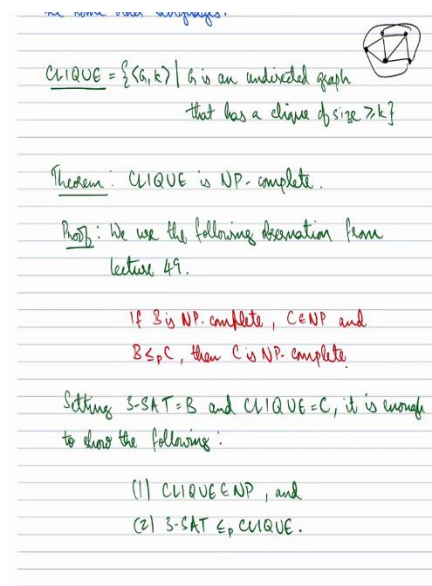 CLIQUE = {⟨G,k⟩ | G is an undirected graph
that has a clique of size ⩾k}
Theorem: CLIQUE is NP-complete.
Proof: We use the following observation from
lecture 49.
If B is NP-complete, C∈NP and
B≤ₚC, then C is NP-complete
Setting 3-SAT = B and CLIQUE = C, it is enough
to show the following:
(1) CLIQUE∈NP, and
(2) 3-SAT ≤ₚ CLIQUE.